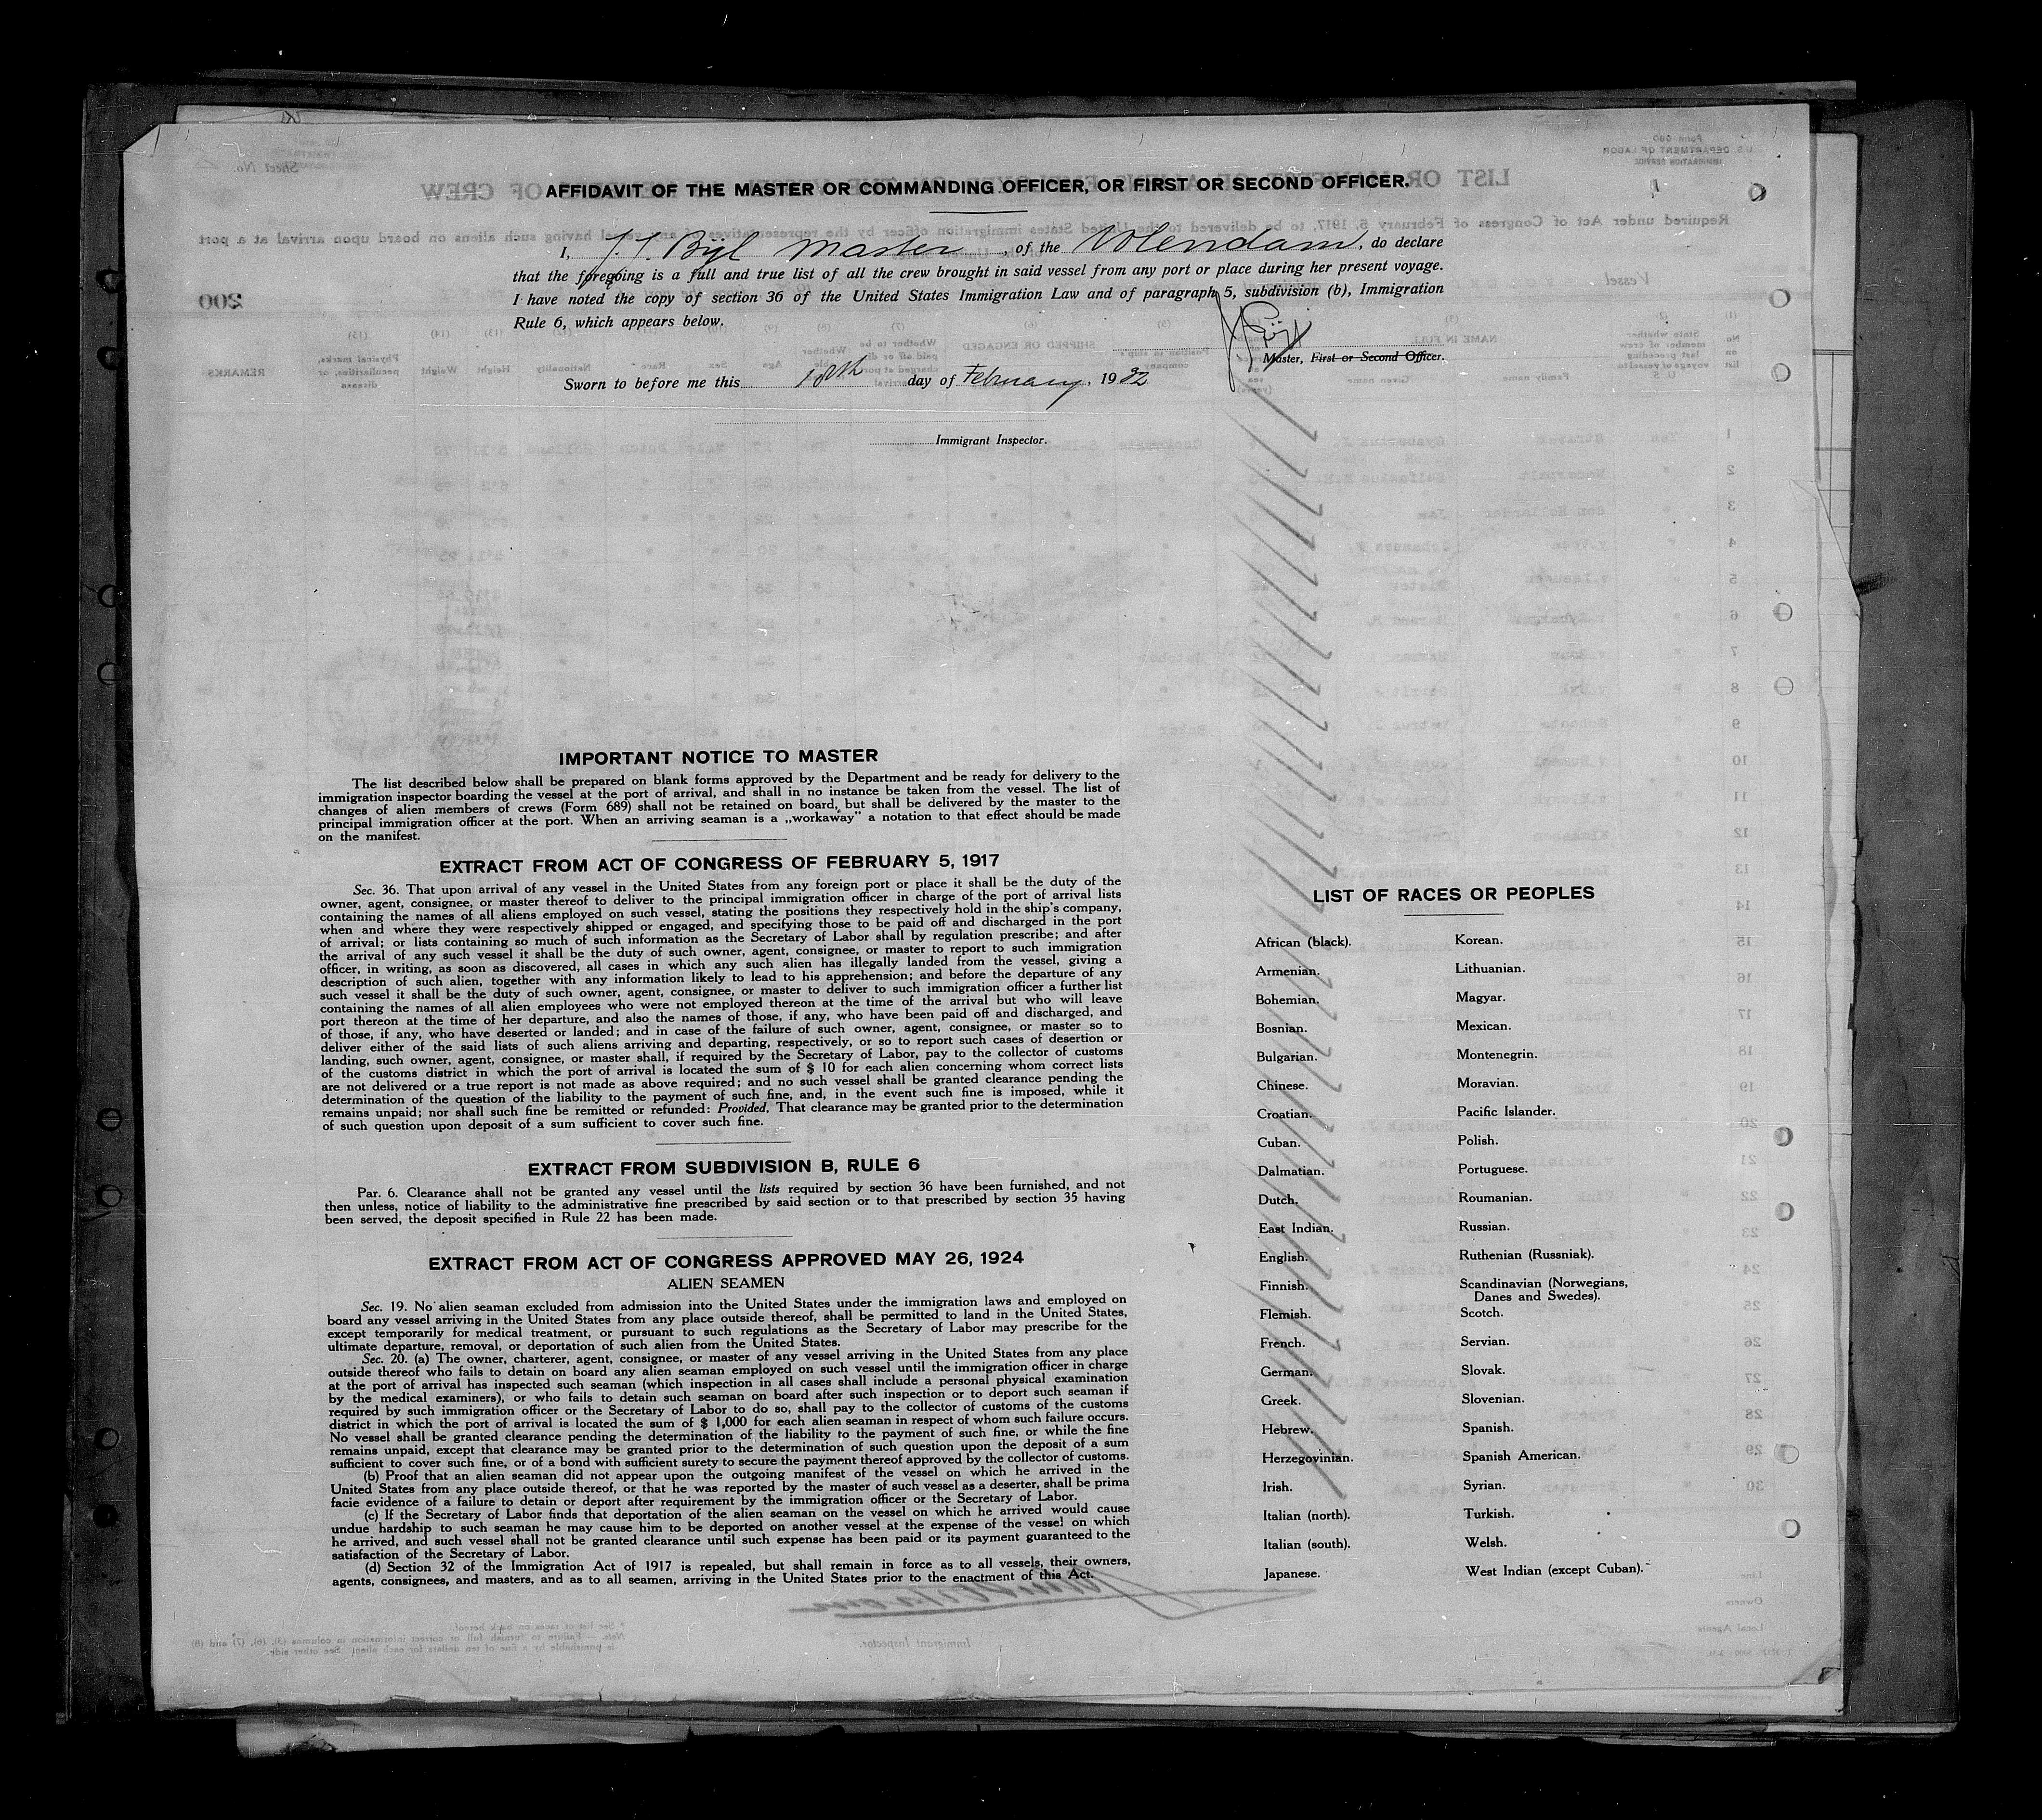 AFFIDAVIT OF THE MASTER OR COMMANDING OFFICER, OR FIRST OR SECOND OFFICER.
I, J. J. Bijl Master, of the Volendam, do declare
that the foregoing is a full and true list of all the crew brought in said vessel from any port or place during her present voyage.
I have noted the copy of section 36 of the United States Immigration Law and of paragraph 5, subdivision (b), Immigration
Rule 6, which appears below.
Master, First or Second Officer.
Sworn to before me this 18th day of February, 1932
Immigrant Inspector.
IMPORTANT NOTICE TO MASTER
The list described below shall be prepared on blank forms approved by the Department and be ready for delivery to the
immigration inspector boarding the vessel at the port of arrival, and shall in no instance be taken from the vessel. The list of
changes of alien members of crews (Form 689) shall not be retained on board, but shall be delivered by the master to the
principal immigration officer at the port. When an arriving seaman is a „workaway” a notation to that effect should be made
on the manifest.
EXTRACT FROM ACT OF CONGRESS OF FEBRUARY 5, 1917
Sec. 36. That upon arrival of any vessel in the United States from any foreign port or place it shall be the duty of the
owner, agent, consignee, or master thereof to deliver to the principal immigration officer in charge of the port of arrival lists
containing the names of all aliens employed on such vessel, stating the positions they respectively hold in the ship's company,
when and where they were respectively shipped or engaged, and specifying those to be paid off and discharged in the port
of arrival; or lists containing so much of such information as the Secretary of Labor shall by regulation prescribe; and after
the arrival of any such vessel it shall be the duty of such owner, agent, consignee, or master to report to such immigration
officer, in writing, as soon as discovered, all cases in which any such alien has illegally landed from the vessel, giving a
description of such alien, together with any information likely to lead to his apprehension; and before the departure of any
such vessel it shall be the duty of such owner, agent, consignee, or master to deliver to such immigration officer a further list
containing the names of all alien employees who were not employed thereon at the time of the arrival but who will leave
port thereon at the time of her departure, and also the names of those, if any, who have been paid off and discharged, and
of those, if any, who have deserted or landed; and in case of the failure of such owner, agent, consignee, or master so to
deliver either of the said lists of such aliens arriving and departing, respectively, or so to report such cases of desertion or
landing, such owner, agent, consignee, or master shall, if required by the Secretary of Labor, pay to the collector of customs
of the customs district in which the port of arrival is located the sum of $ 10 for each alien concerning whom correct lists
are not delivered or a true report is not made as above required; and no such vessel shall be granted clearance pending the
determination of the question of the liability to the payment of such fine, and, in the event such fine is imposed, while it
remains unpaid; nor shall such fine be remitted or refunded: Provided, That clearance may be granted prior to the determination
of such question upon deposit of a sum sufficient to cover such fine.
EXTRACT FROM SUBDIVISION B, RULE 6
Par. 6. Clearance shall not be granted any vessel until the lists required by section 36 have been furnished, and not
then unless, notice of liability to the administrative fine prescribed by said section or to that prescribed by section 35 having
been served, the deposit specified in Rule 22 has been made.
EXTRACT FROM ACT OF CONGRESS APPROVED MAY 26, 1924
ALIEN SEAMEN
Sec. 19. No alien seaman excluded from admission into the United States under the immigration laws and employed on
board any vessel arriving in the United States from any place outside thereof, shall be permitted to land in the United States,
except temporarily for medical treatment, or pursuant to such regulations as the Secretary of Labor may prescribe for the
ultimate departure, removal, or deportation of such alien from the United States.
Sec. 20. (a) The owner, charterer, agent, consignee, or master of any vessel arriving in the United States from any place
outside thereof who fails to detain on board any alien seaman employed on such vessel until the immigration officer in charge
at the port of arrival has inspected such seaman (which inspection in all cases shall include a personal physical examination
by the medical examiners), or who fails to detain such seaman on board after such inspection or to deport such seaman if
required by such immigration officer or the Secretary of Labor to do so, shall pay to the collector of customs of the customs
district in which the port of arrival is located the sum of $ 1,000 for each alien seaman in respect of whom such failure occurs.
No vessel shall be granted clearance pending the determination of the liability to the payment of such fine, or while the fine
remains unpaid, except that clearance may be granted prior to the determination of such question upon the deposit of a sum
sufficient to cover such fine, or of a bond with sufficient surety to secure the payment thereof approved by the collector of customs.
(b) Proof that an alien seaman did not appear upon the outgoing manifest of the vessel on which he arrived in the
United States from any place outside thereof, or that he was reported by the master of such vessel as a deserter, shall be prima
facie evidence of a failure to detain or deport after requirement by the immigration officer or the Secretary of Labor.
(c) If the Secretary of Labor finds that deportation of the alien seaman on the vessel on which he arrived would cause
undue hardship to such seaman he may cause him to be deported on another vessel at the expense of the vessel on which
he arrived, and such vessel shall not be granted clearance until such expense has been paid or its payment guaranteed to the
satisfaction of the Secretary of Labor.
(d) Section 32 of the Immigration Act of 1917 is repealed, but shall remain in force as to all vessels, their owners,
agents, consignees, and masters, and as to all seamen, arriving in the United States prior to the enactment of this Act.
LIST OF RACES OR PEOPLES
African (black).
Armenian.
Bohemian.
Bosnian.
Bulgarian.
Chinese.
Croatian.
Cuban.
Dalmatian.
Dutch.
East Indian.
English.
Finnish.
Flemish.
French.
German.
Greek.
Hebrew.
Herzegovinian.
Irish.
Italian (north).
Italian (south).
Japanese.
Korean.
Lithuanian.
Magyar.
Mexican.
Montenegrin.
Moravian.
Pacific Islander.
Polish.
Portuguese.
Roumanian.
Russian.
Ruthenian (Russniak).
Scandinavian (Norwegians,
Danes and Swedes).
Scotch.
Servian.
Slovak.
Slovenian.
Spanish.
Spanish American.
Syrian.
Turkish.
Welsh.
West Indian (except Cuban).